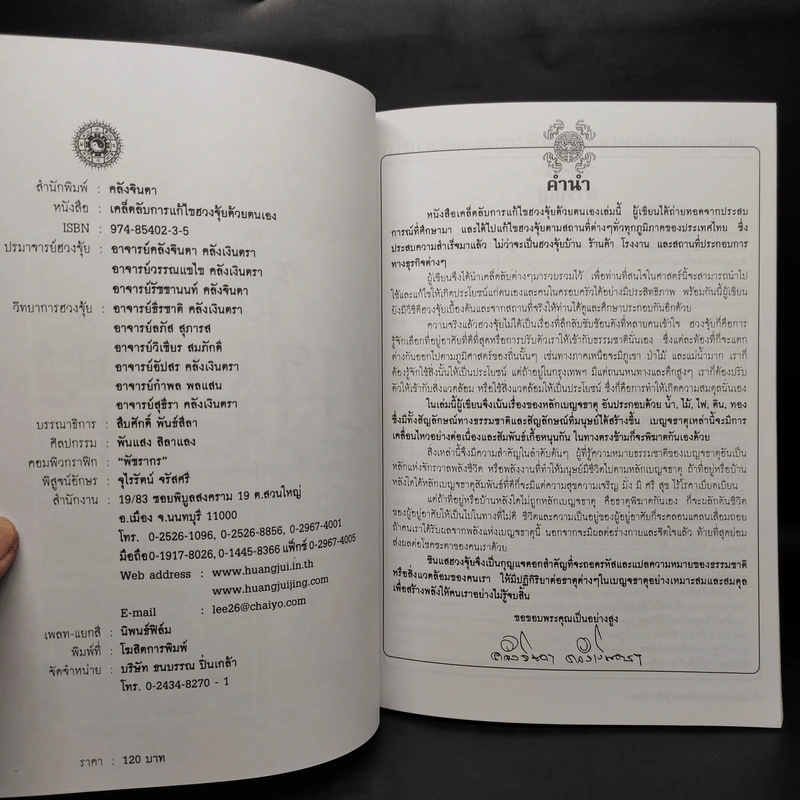 สำนักพิมพ์ : คลังจินดา
หนังสือ : เคล็ดลับการแก้ไขฮวงจุ้ยด้วยตนเอง
ISBN : 974-85402-3-5
ปรมาจารย์ฮวงจุ้ย : อาจารย์คลังจินดา คลังเงินตรา
อาจารย์วรรณแชไข คลังเงินตรา
อาจารย์รัชชานนท์ คลังจินดา
วิทยาการฮวงจุ้ย : อาจารย์ธีรชาติ คลังเงินตรา
อาจารย์ลภัส สุภารส
อาจารย์วิเชียร สมภักดี
อาจารย์อัปสร คลังเงินตรา
อาจารย์กำพล พลแสน
อาจารย์สุธีรา คลังเงินตรา
บรรณาธิการ : สืบศักดิ์ พันธ์สีลา
ศิลปกรรม : พันแสง สิลาแลง
คอมพิวกราฟิก : "พัชรากร"
พิสูจน์อักษร : จุไรรัตน์ จรัสศรี
สำนักงาน : 19/83 ซอยพิบูลสงคราม 19 ต.สวนใหญ่
อ.เมือง จ.นนทบุรี 11000
โทร. 0-2526-1096, 0-2526-8856, 0-2967-4001
มือถือ0-1917-8026, 0-1445-8366 แฟ็กซ์ 0-2967-4005
Web address : www.huangjui.in.th
www.huangjuijing.com
E-mail : lee26@chaiyo.com
เพลท-แยกสี : นิพนธ์ฟิล์ม
พิมพ์ที่ : โฆสิตการพิมพ์
จัดจำหน่าย : บริษัท ธนบรรณ ปิ่นเกล้า
โทร. 0-2434-8270 - 1
ราคา : 120 บาท
คำนำ
หนังสือเคล็ดลับการแก้ไขฮวงจุ้ยด้วยตนเองเล่มนี้ ผู้เขียนได้ถ่ายทอดจากประสบ
การณ์ที่ศึกษามา และได้ไปแก้ไขฮวงจุ้ยตามสถานที่ต่างๆทั่วทุกภูมิภาคของประเทศไทย ซึ่ง
ประสบความสำเร็จมาแล้ว ไม่ว่าจะเป็นฮวงจุ้ยบ้าน ร้านค้า โรงงาน และสถานที่ประกอบการ
ทางธุรกิจต่างๆ
ผู้เขียนจึงได้นำเคล็ดลับต่างๆมารวบรวมไว้ เพื่อท่านที่สนใจในศาสตร์นี้จะสามารถนำไป
ใช้และแก้ไขให้เกิดประโยชน์แก่ตนเองและคนในครอบครัวได้อย่างมีประสิทธิภาพ พร้อมกันนี้ผู้เขียน
ยังมีวิธีดีฮวงจุ้ยเบื้องต้นและจากสถานที่จริงให้ท่านได้ดูและศึกษาประกอบกันอีกด้วย
ความจริงแล้วฮวงจุ้ยไม่ได้เป็นเรื่องที่ลึกลับซับซ้อนดังที่หลายคนเข้าใจ ฮวงจุ้ยก็คือการ
รู้จักเลือกที่อยู่อาศัยที่ดีที่สุดหรือการปรับตัวเราให้เข้ากับธรรมชาตินั่นเอง ซึ่งแต่ละท้องที่ก็จะแตก
ต่างกันออกไปตามภูมิศาสตร์ของถิ่นนั้นๆ เช่นทางภาคเหนือจะมีภูเขา ป่าไม้ และแม่น้ำมาก เราก็
ต้องรู้จักใช้สิ่งนั้นให้เป็นประโยชน์ แต่ถ้าอยู่ในกรุงเทพฯ มีแต่ถนนหนทางและตึกสูงๆ เราก็ต้องปรับ
ตัวให้เข้ากับสิ่งแวดล้อม หรือใช้สิ่งแวดล้อมให้เป็นประโยชน์ ซึ่งก็คือการทำให้เกิดความสมดุลนั่นเอง
ในเล่มนี้ผู้เขียนจึงเน้นเรื่องของหลักเบญจธาตุ อันประกอบด้วย น้ำ, ไม้, ไฟ, ดิน, ทอง
ซึ่งมีทั้งสัญลักษณ์ทางธรรมชาติและสัญลักษณ์ที่มนุษย์ได้สร้างขึ้น เบญจธาตุเหล่านี้จะมีการ
เคลื่อนไหวอย่างต่อเนื่องและสัมพันธ์เกื้อหนุนกัน ในทางตรงข้ามก็จะพิฆาตกันเองด้วย
สิ่งเหล่านี้จึงมีความสำคัญในลำดับต้นๆ ผู้ที่รู้ความหมายธรรมชาติของเบญจธาตุอันเป็น
หลักแห่งจักรวาลพลังชีวิต หรือพลังงานที่ทำให้มนุษย์มีชีวิตไปตามหลักเบญจธาตุ ถ้าที่อยู่หรือบ้าน
หลังใดได้หลักเบญจธาตุสัมพันธ์ที่ดีก็จะมีแต่ความสุขความเจริญ มั่ง มี ศรี สุข ไร้โรคาเบียดเบียน
แต่ถ้าที่อยู่หรือบ้านหลังใดไม่ถูกหลักเบญจธาตุ คือธาตุพิฆาตกันเอง ก็จะผลักดันชีวิต
ของผู้อยู่อาศัยให้เป็นไปในทางที่ไม่ดี ชีวิตและความเป็นอยู่ของผู้อยู่อาศัยก็จะคลอนแคลนเสื่อมถอย
ถ้าคนเราได้รับผลจากพลังเบญจธาตุนี้ นอกจากจะมีผลต่อร่างกายและจิตใจแล้ว ท้ายที่สุดย่อม
ส่งผลต่อโชคชะตาของคนเราด้วย
ซินแสฮวงจุ้ยจึงเป็นกุญแจดอกสำคัญที่จะถอดรหัสและแปลความหมายของธรรมชาติ
หรือสิ่งแวดล้อมของคนเรา ให้มีปฏิกิริยาต่อธาตุต่างๆในเบญจธาตุอย่างเหมาะสมและสมดุล
เพื่อสร้างพลังให้คนเราอย่างไม่รู้จบสิ้น
ขอขอบพระคุณเป็นอย่างสูง